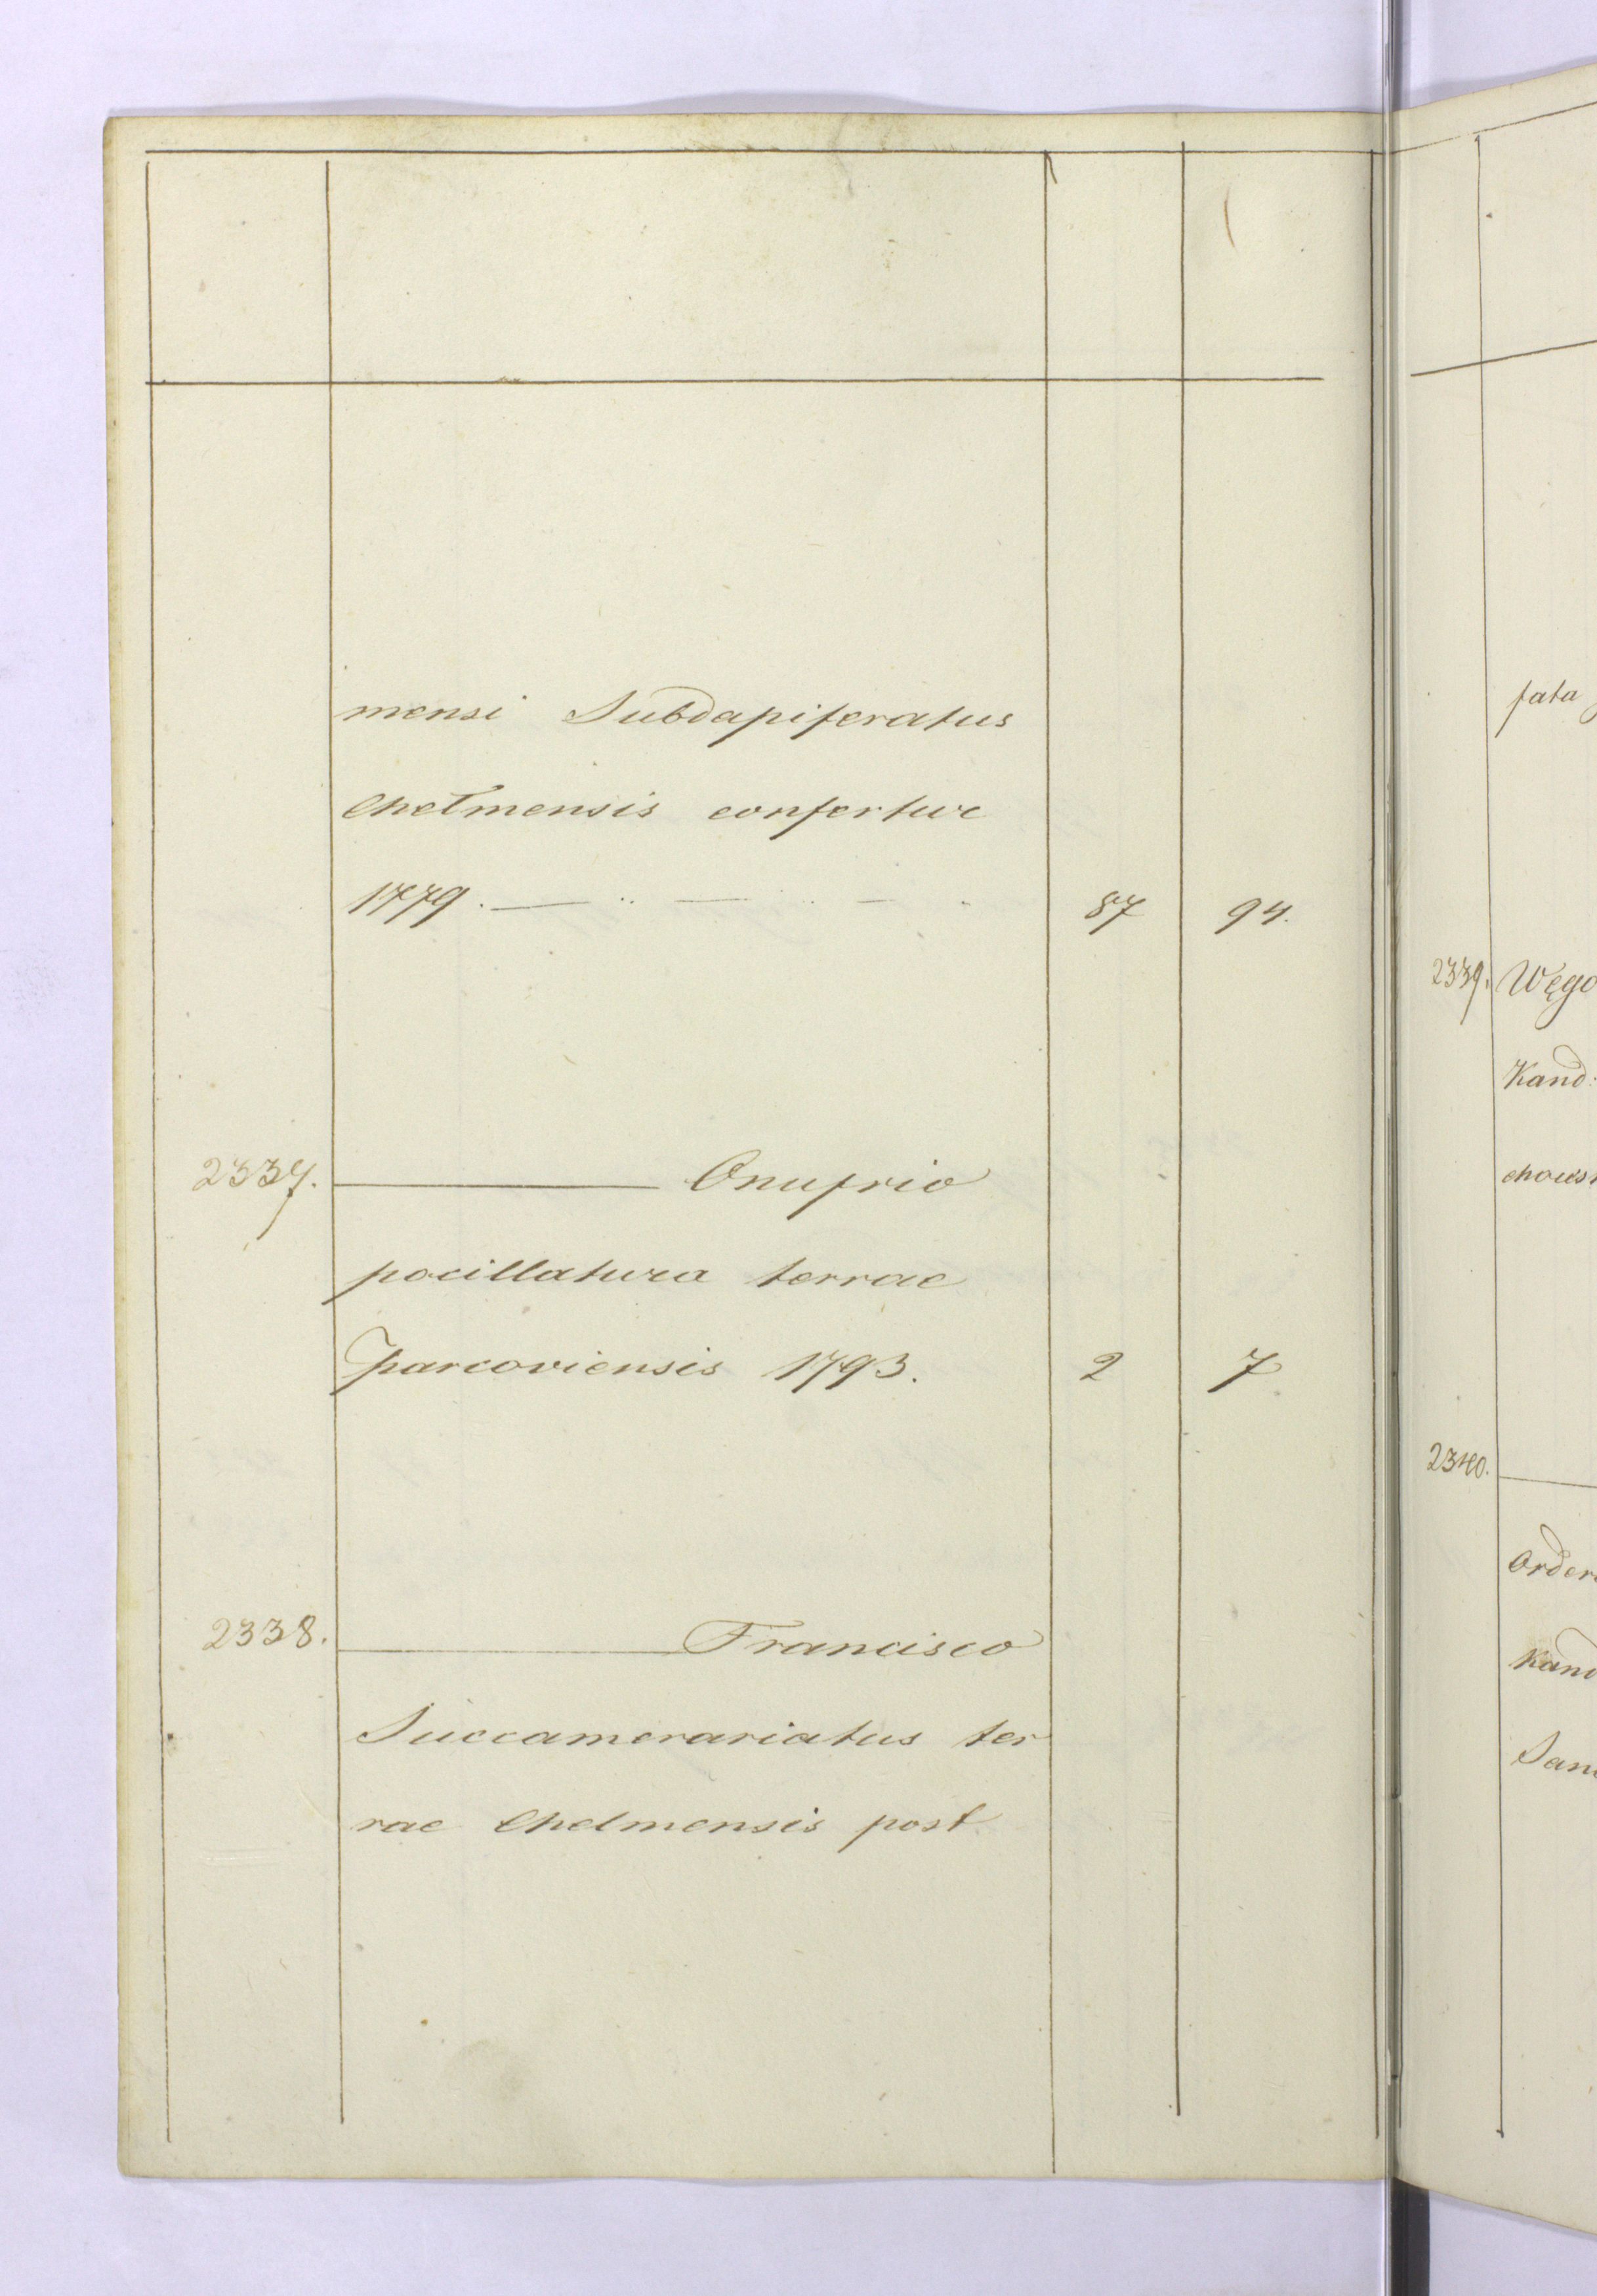 mensi Subdapiferatus
Chełmensis confertur
1779. — .. — .. — .
87 94.
2337. ——— Onufrio
pocillatura terrae
Parcoviensis 1793. 2 7
2338. ——— Francisco
Succamerariatus ter
rae Chelmensis post
fata
2339. Węgo
Kand:
chows
2340. ———
Order
Kand
San